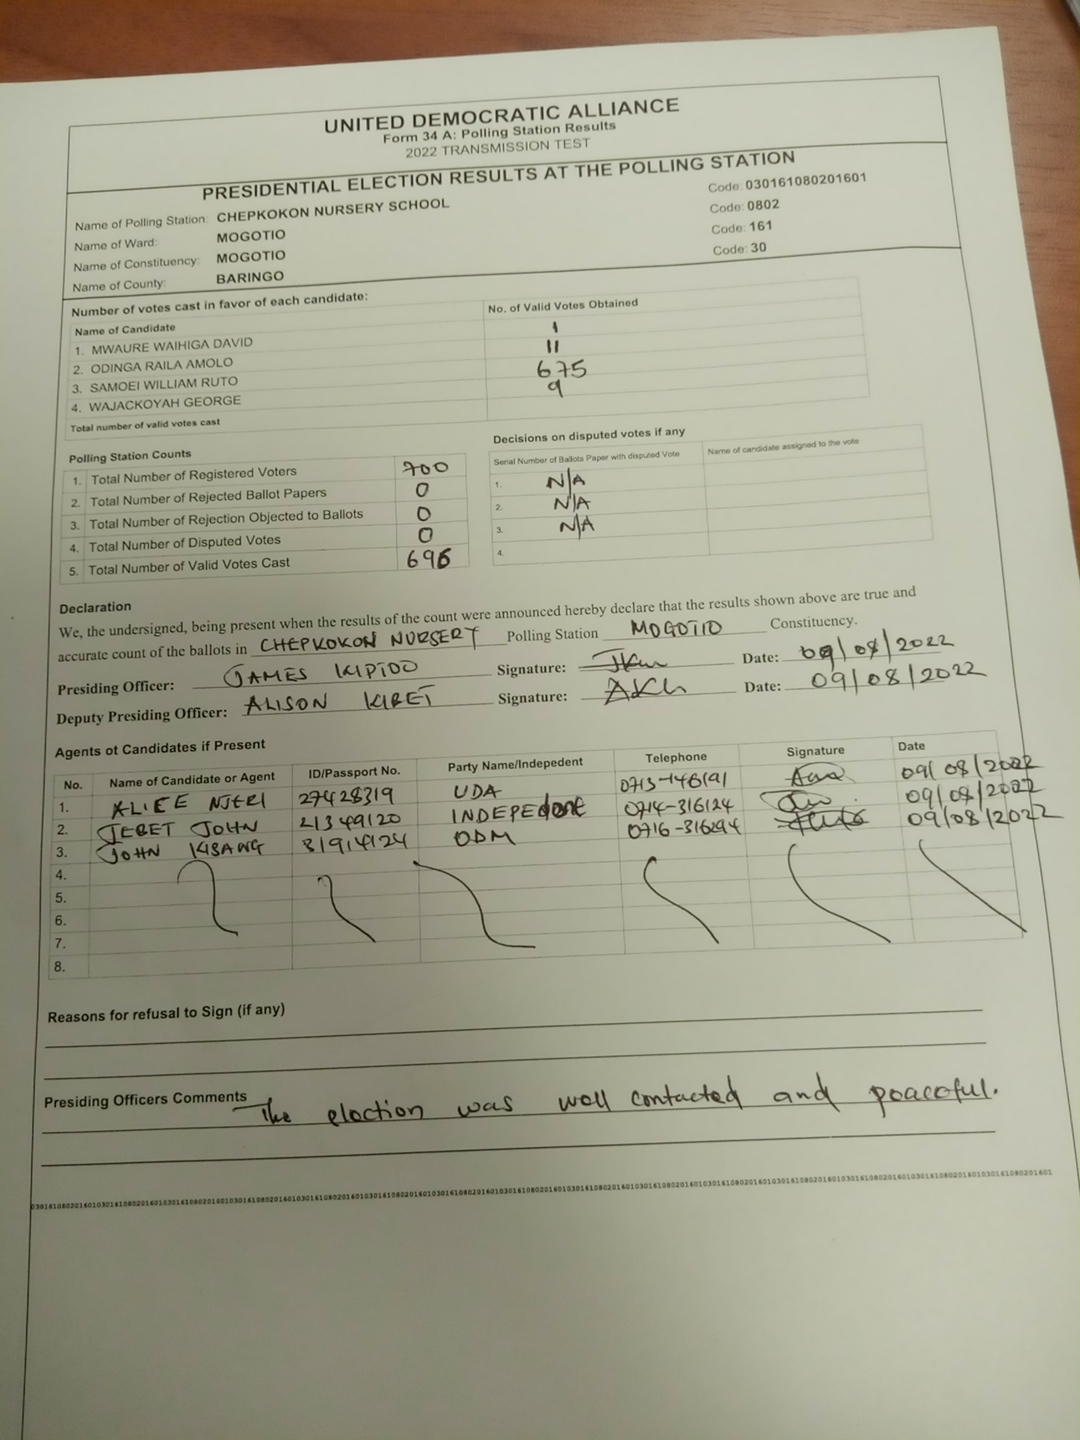 UNITED DEMOCRATIC ALLIANCE
Form 34 A: Polling Station Results
2022 TRANSMISSION TEST
PRESIDENTIAL ELECTION RESULTS AT THE POLLING STATION
Name of Polling Station: CHEPKOKON NURSERY SCHOOL Code: 030161080201601
Name of Ward: MOGOTIO Code: 0802
Name of Constituency: MOGOTIO Code: 161
Name of County: BARINGO Code: 30
Number of votes cast in favor of each candidate:
Name of Candidate No. of Valid Votes Obtained
1. MWAURE WAIHIGA DAVID 1
2. ODINGA RAILA AMOLO 11
3. SAMOEI WILLIAM RUTO 675
4. WAJACKOYAH GEORGE 9
Total number of valid votes cast
Polling Station Counts
1. Total Number of Registered Voters 700
2. Total Number of Rejected Ballot Papers 0
3. Total Number of Rejection Objected to Ballots 0
4. Total Number of Disputed Votes 0
5. Total Number of Valid Votes Cast 696
Decisions on disputed votes if any
Serial Number of Ballots Paper with disputed Vote Name of candidate assigned to the vote
1. N/A
2. N/A
3. N/A
4.
Declaration
We, the undersigned, being present when the results of the count were announced hereby declare that the results shown above are true and
accurate count of the ballots in CHEPKOKON NURSERY Polling Station MOGOTIO Constituency.
Presiding Officer: JAMES KIPTOO Signature: Date: 09/08/2022
Deputy Presiding Officer: ALISON KIBET Signature: Date: 09/08/2022
Agents ot Candidates if Present
No. Name of Candidate or Agent ID/Passport No. Party Name/Indepedent Telephone Signature Date
1. ALICE NJERI 27428319 UDA 0713-146191 09/08/2022
2. JEBET JOHN 21349120 INDEPEdent 0714-316124 09/08/2022
3. JOHN KIBANG 31914124 ODM 0716-316294 09/08/2022
4.
5.
6.
7.
8.
Reasons for refusal to Sign (if any)
Presiding Officers Comments The election was well contacted and peaceful.